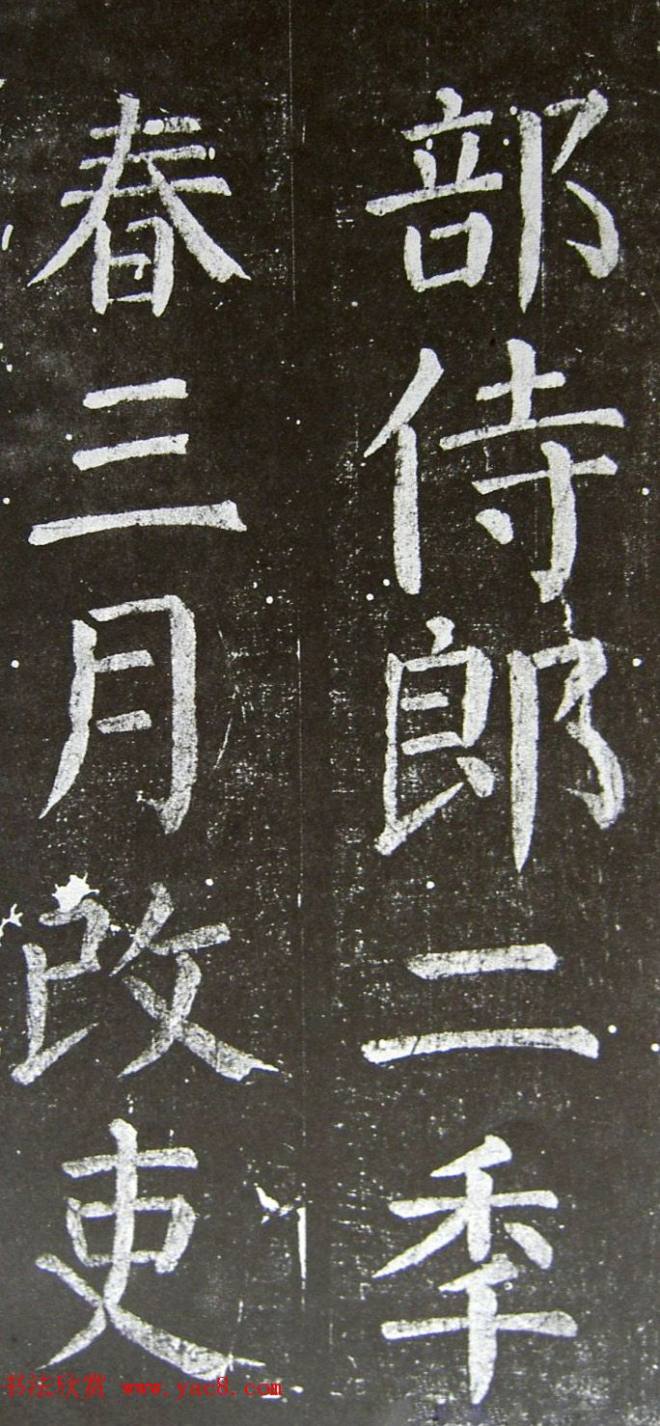 部侍郎二秊
春三月改吏
书法欣赏 www.yac8.com